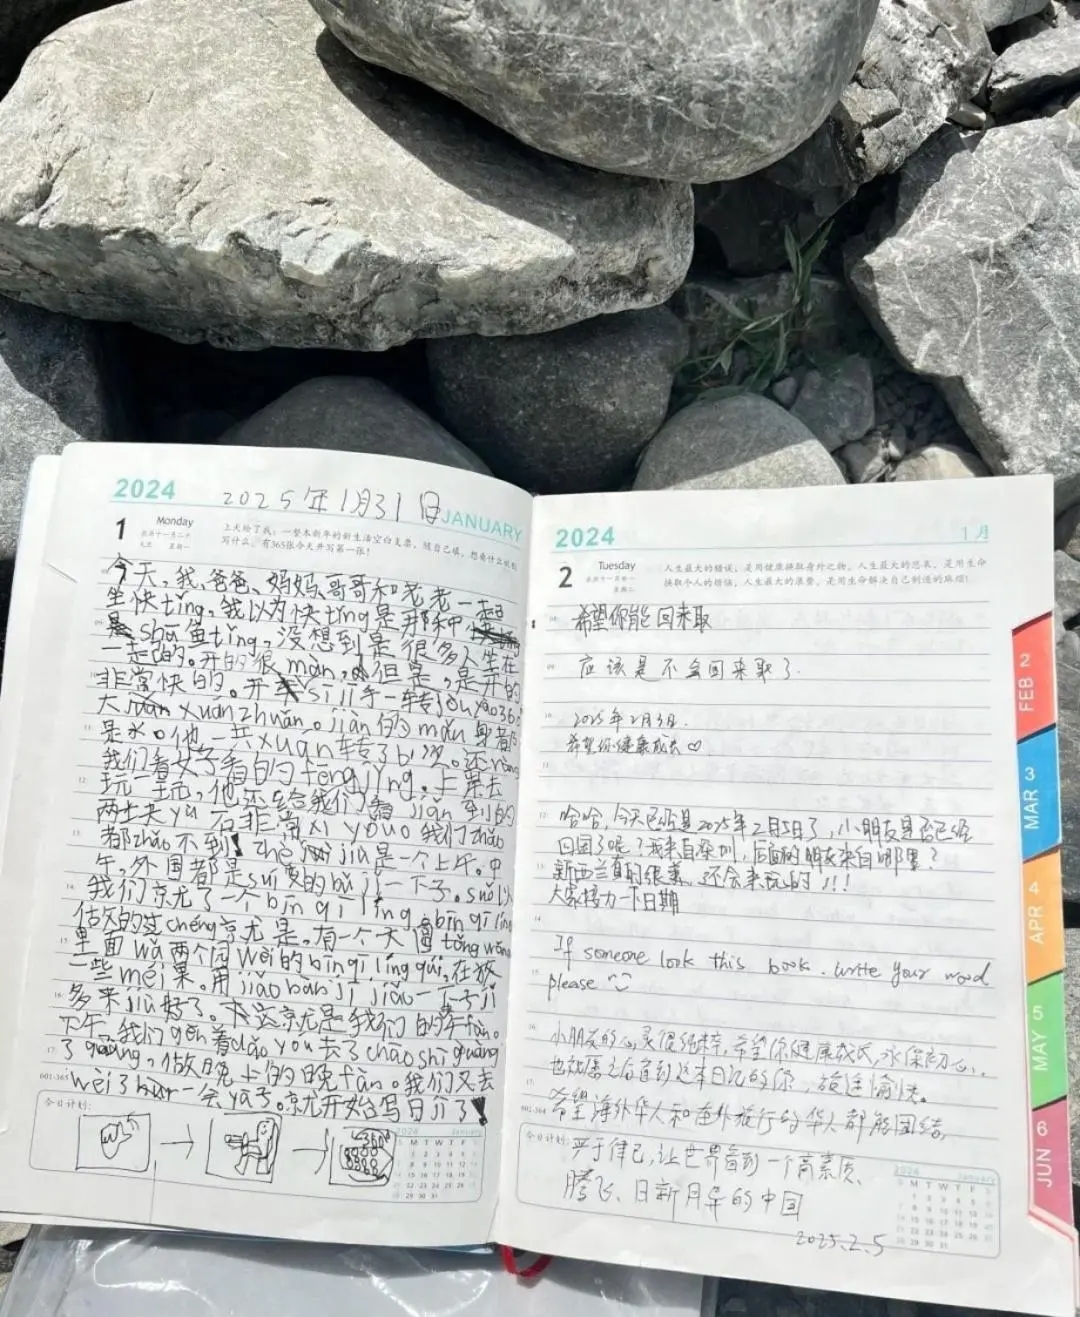 2024 2025年1月31日 JANUARY
1 Monday
农历十一月二十
元旦 星期一
上天给了我:一整本新年的新生活空白支票,随自己填,想要什么呢就
写什么,有365张今天并写第一张!
今天,我、爸爸、妈妈、哥哥和老老一起
坐快tǐng,我以为快tǐng是那种
shā鱼tǐng,没想到是很多人坐在
一起的。开的很màn,但是,是开的
非常快的。开 sī jī手一转jòu yào360
大 xuán zhuǎn。jiàn的mǎn身都
是水。他一共xuán转了6次。还
我们看女子看的fēng jǐng。上果去
玩一玩,他还给我们 jiǎn到的
两土夫yù石非常xī yǒu我们zhǎo
都zhǎo不到! zhè jiù是一个上午。中
午,外国都是suí便的bù jī一下子。suǒ以
我们京尤了一个bīng qí líng。bīng qí líng
估攵的过chéng京尤是,有一个大圆tǒng wǎng
里面wā两个园wèi的bīng qí líng qiú,在放
一些méi果。用jiǎo bàn jī jiǎo一下子jī
多来jiù好了。这京尤是我们的午fàn。
下午,我们gēn着dǎo yóu去了chāo shì guàng
了guàng,做晚上的晚fàn。我们又去
wèi了 一会yā子。京尤开始写日介了!
601-365
今日计划:
2024 January
S M T W T F S
2024 1月
2 Tuesday
农历十一月廿一
星期二
人生最大的错误,是用健康换取身外之物,人生最大的悲哀,是用生命
换取个人的烦恼,人生最大的浪费,是用生命解决自己制造的麻烦!
希望你能回来取
应该是不会回来取了.
2025年2月3日.
希望你健康成长♡
哈哈,今天已经是2025年2月5日了,小朋友是否已经
回国了呢?我来自深圳,后面的朋友来自哪里?
新西兰真的很美,还会来玩的!!!
大家接力一下日期
If someone look this book. write your word
please
小朋友的心灵很纯粹,希望你健康成长,永保初心,
也祝愿之后看到这本日记的你,旅途愉快。
希望海外华人和在外旅行的华人都能团结,
严于律己,让世界看到一个高素质、
腾飞、日新月异的中国
2025.2.5
602-364
今日计划:
2024 January
S M T W T F S
2 FEB
3 MAR
4 APR
5 MAY
6 JUN